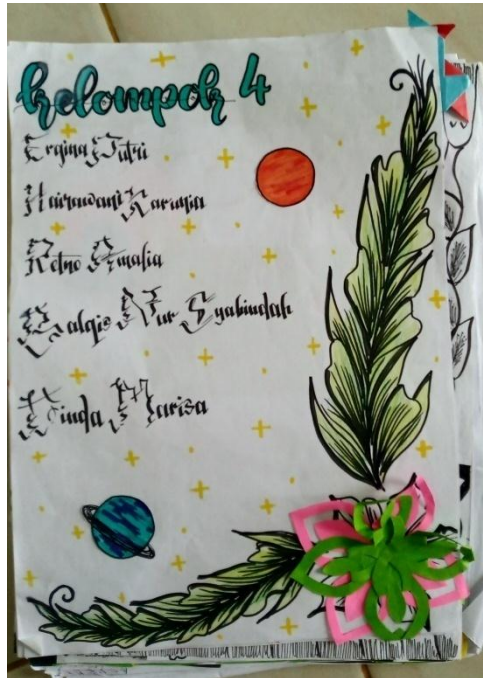 kelompok 4
Ergina Putri
Hairawani Karunia
Retno Amalia
Balqis Nur Syabindah
Winda Marisa